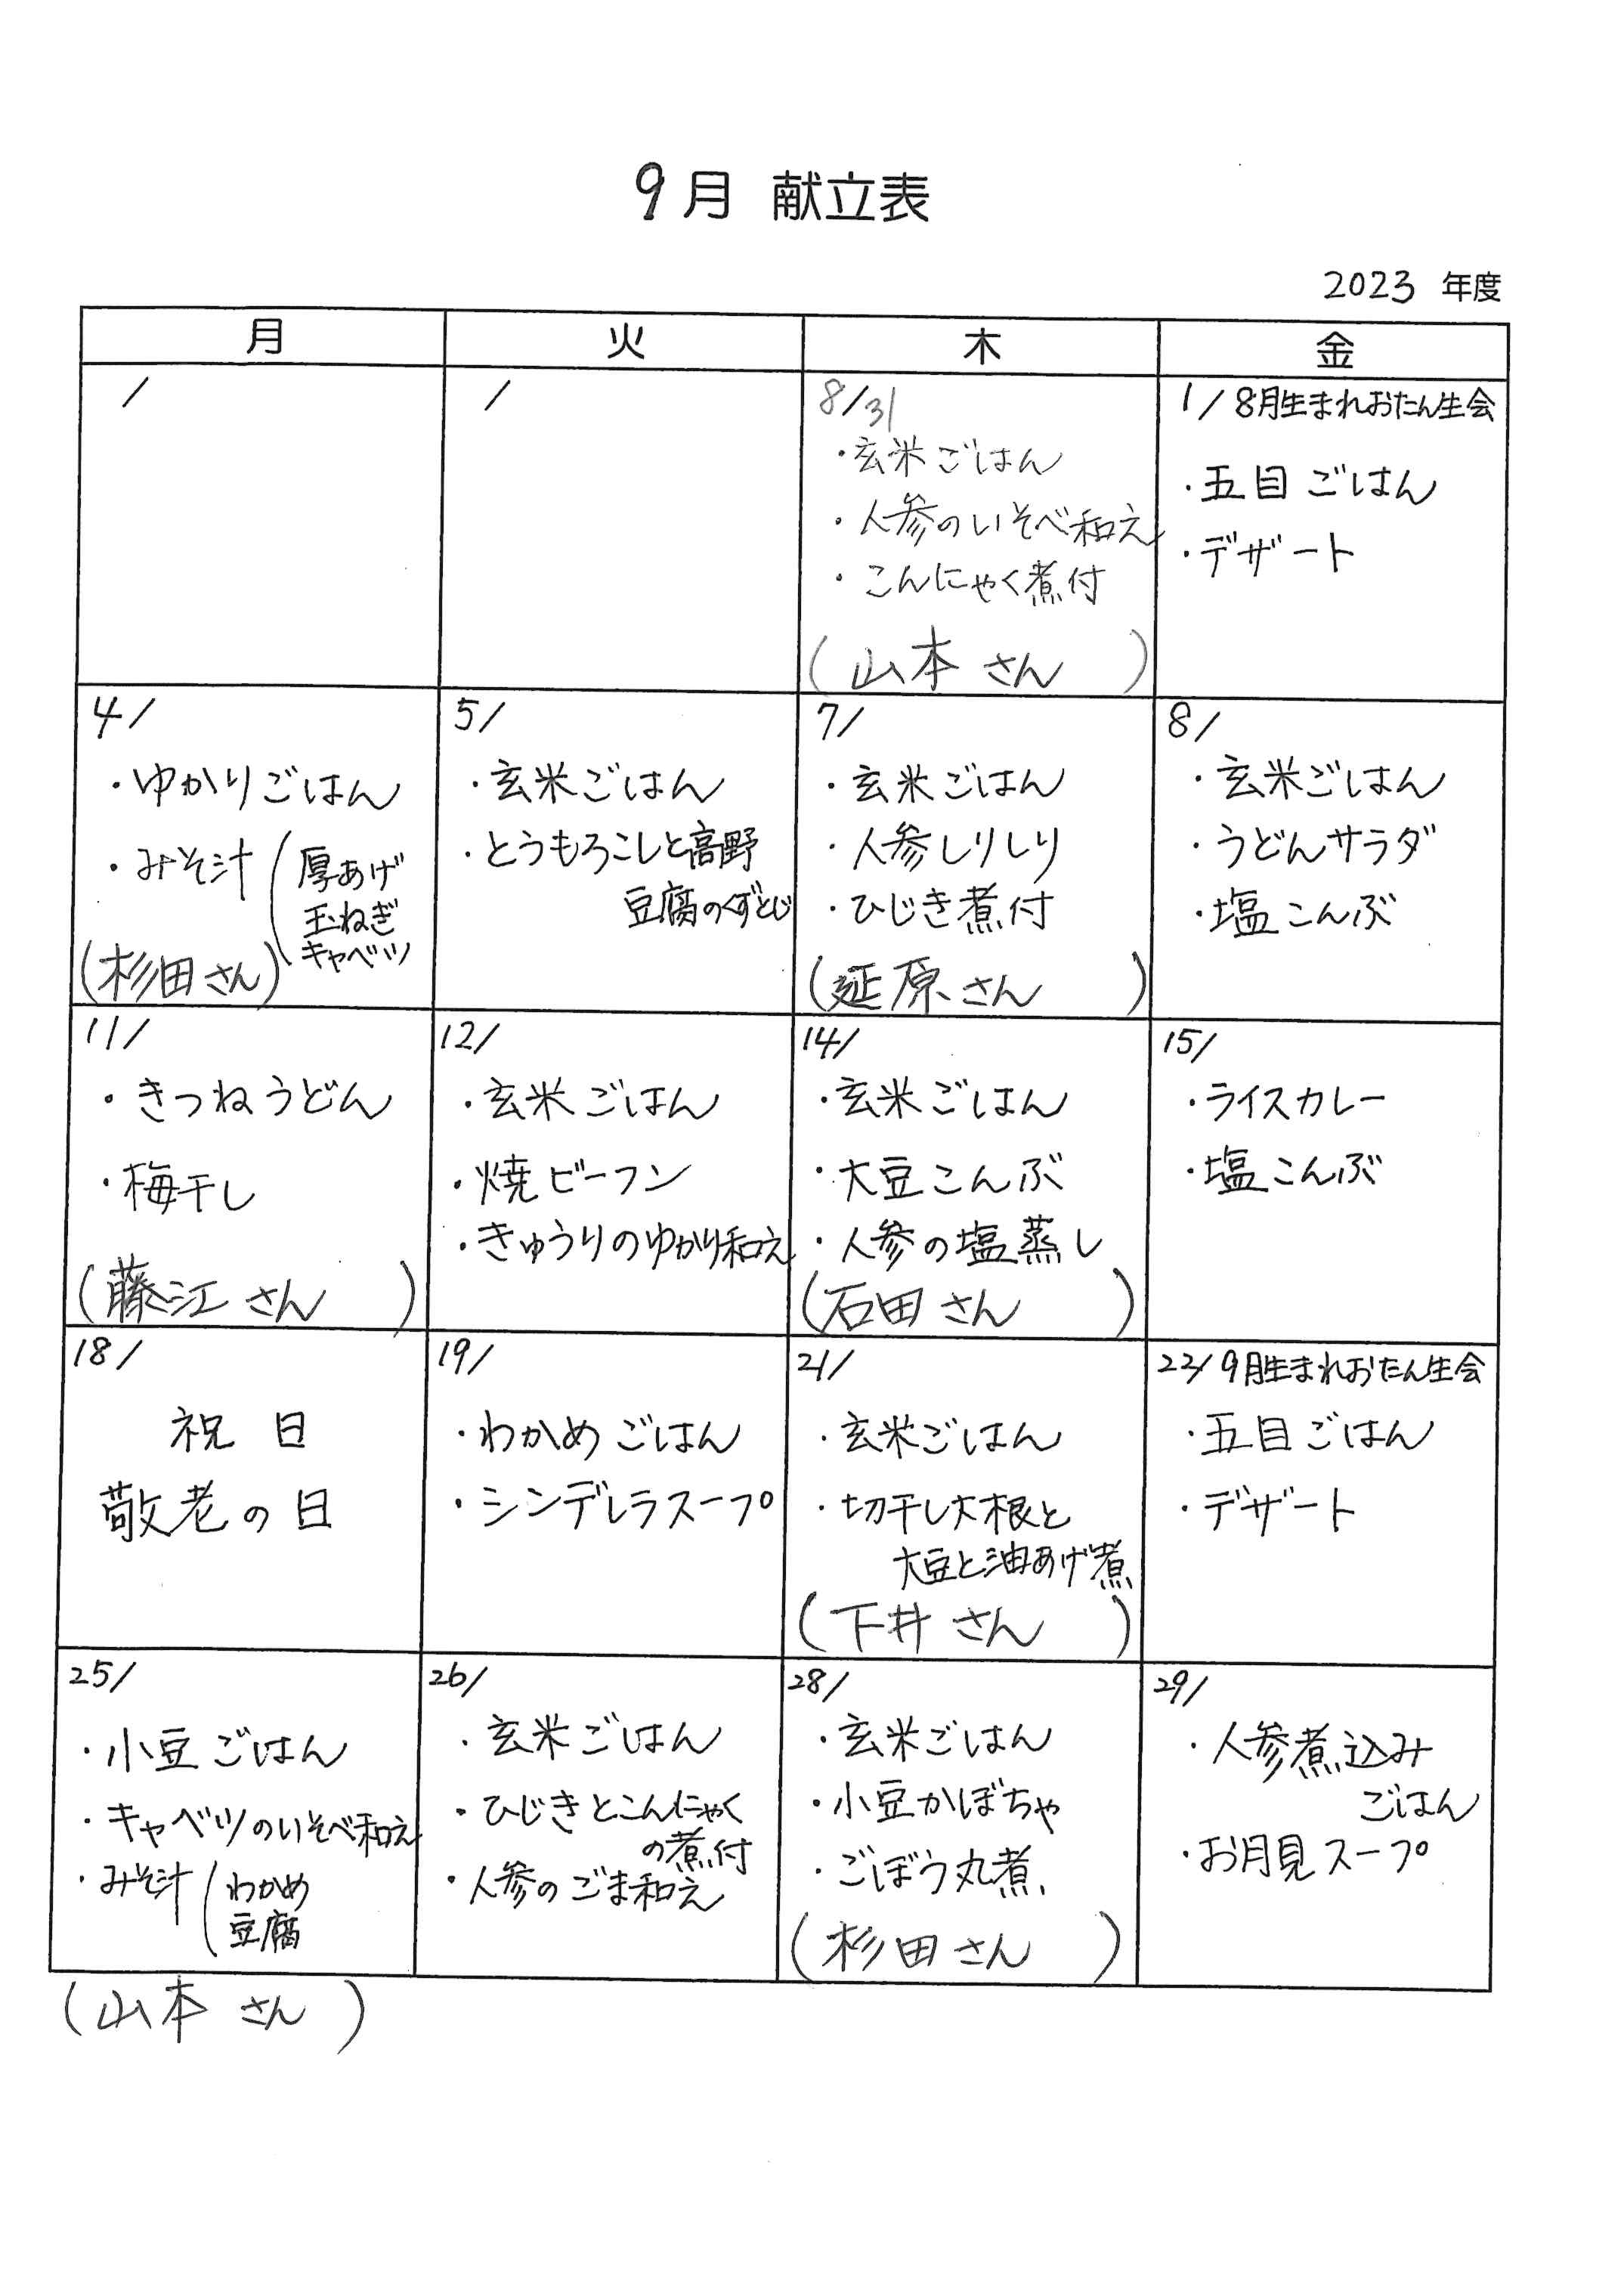 9月 献立表
2023 年度
月 火 木 金
/
/
8/31
・玄米ごはん
・人参のいそべ和え
・こんにゃく煮付
(山本さん)
1/ 8月生まれおたん生会
・五目ごはん
・デザート
4/
・ゆかりごはん
・みそ汁(厚あげ
玉ねぎ
キャベツ
(杉田さん)
5/
・玄米ごはん
・とうもろこしと高野
豆腐のくずとじ
7/
・玄米ごはん
・人参しりしり
・ひじき煮付
(延原さん)
8/
・玄米ごはん
・うどんサラダ
・塩こんぶ
11/
・きつねうどん
・梅干し
(藤江さん)
12/
・玄米ごはん
・焼ビーフン
・きゅうりのゆかり和え
14/
・玄米ごはん
・大豆こんぶ
・人参の塩蒸し
(石田さん)
15/
・ライスカレー
・塩こんぶ
18/
祝日
敬老の日
19/
・わかめごはん
・シンデレラスープ
21/
・玄米ごはん
・切干し大根と
大豆と油あげ煮
(下井さん)
22/ 9月生まれおたん生会
・五目ごはん
・デザート
25/
・小豆ごはん
・キャベツのいそべ和え
・みそ汁(わかめ
豆腐
(山本さん)
26/
・玄米ごはん
・ひじきとこんにゃく
の煮付
・人参のごま和え
28/
・玄米ごはん
・小豆かぼちゃ
・ごぼう丸煮
(杉田さん)
29/
・人参煮込み
ごはん
・お月見スープ